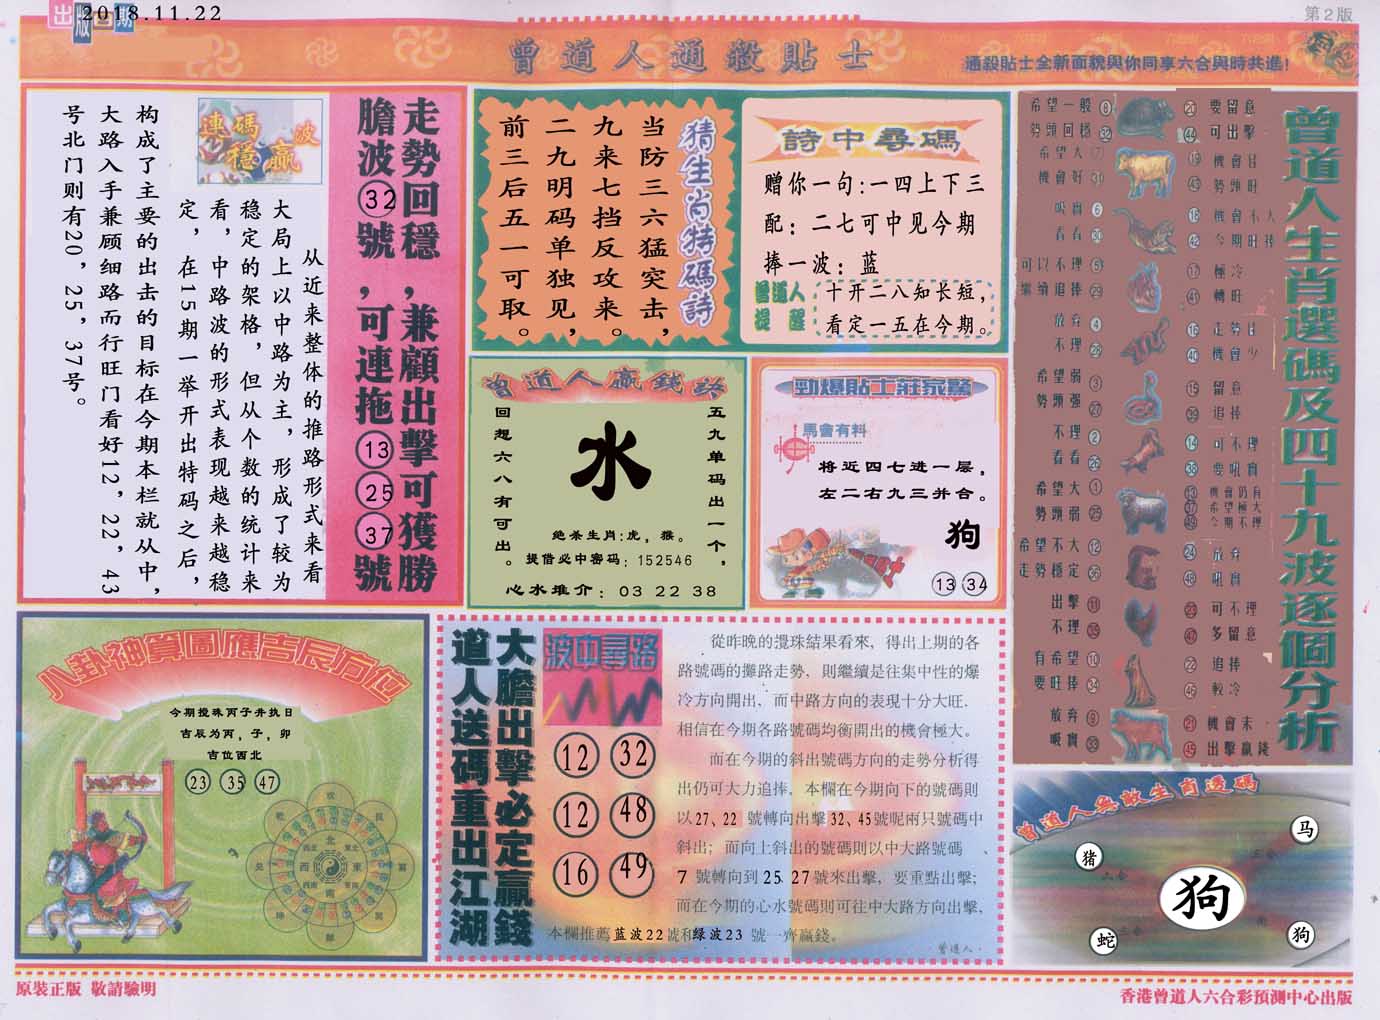 出版日期
2018.11.22
第2版
曾道人通殺貼士
通殺貼士全新面貌與你同享六合與時共進!
走勢回穩,兼顧出擊可獲勝
膽波32號,可連拖13 25 37號
連碼波
穩贏
从近来整体的推路形式来看
大局上以中路为主,形成了较为
稳定的架格,但从个数的统计来
看,中路波的形式表现越来越稳
定,在15期一举开出特码之后,
构成了主要的出击的目标在今期本栏就从中,
大路入手兼顾细路而行旺门看好12,22,43
号北门则有20,25,37号。
猜生肖特碼詩
当防三六猛突击,
九来七挡反攻来。
二九明码单独见,
前三后五一可取。
詩中尋碼
赠你一句:一四上下三
配:二七可中见今期
捧一波:蓝
曾道人
提醒
十开二八知长短,
看定一五在今期。
曾道人贏錢詩
五九单码出一个,
回想六八有可出。
水
绝杀生肖:虎,猴。
提借必中密码:152546
心水推介:03 22 38
勁爆貼士莊家驚
馬會有料
将近四七进一层,
左二右九三并合。
狗
13 34
曾道人生肖選碼及四十九波逐個分析
希望一般
勢頭回穩 32
20 要留意
44 可出擊
希望大
機會好
19 機會佳
43 勢頭旺
吸實 6
看看 30
18 機會不大
42 今期旺捧
可以不理 5
繼續追捧 29
17 極冷
41 轉旺
放弃 4
不理
16 走勢佳
40 機會少
希望弱 3
勢頭强 27
15 留意
39 追捧
不理 2
看看 26
14 可不理
38 要吼實
希望大 1
勢頭弱 25
13 機會仍有
37 希望極大
49 今期不理
希望不大 12
走勢穩定 36
24 放弃
48 吼實
出擊 11
不理 35
23 可不理
47 多留意
有希望 10
要旺捧 34
22 追捧
46 較冷
放弃 9
吸實 33
21 機會末
45 出擊贏錢
八卦神算圖應吉辰方位
今期搅珠丙子井执日
吉辰为丙,子,卯
吉位西北
23 35 47
北
西
東
南
大膽出擊必定贏錢
道人送碼重出江湖
波中尋路
12 32
12 48
16 49
從昨晚的攪珠結果看來,得出上期的各
路號碼的攤路走勢,則繼續是往集中性的爆
冷方向開出,而中路方向的表現十分大旺.
相信在今期各路號碼均衡開出的機會極大。
而在今期的斜出號碼方向的走勢分析得
出仍可大力追捧,本欄在今期向下的號碼則
以27、22 號轉向出擊32、45號呢兩只號碼中
斜出;而向上斜出的號碼則以中大路號碼、
7 號轉向到25 27號來出擊,要重點出擊;
而在今期的心水號碼則可往中大路方向出擊,
本欄推薦蓝波22號和绿波23 號一齊贏錢。
曾道人.
曾道人無敵生肖透碼
马
猪
六合
狗
蛇
狗
原裝正版 敬請驗明
香港曾道人六合彩預測中心出版